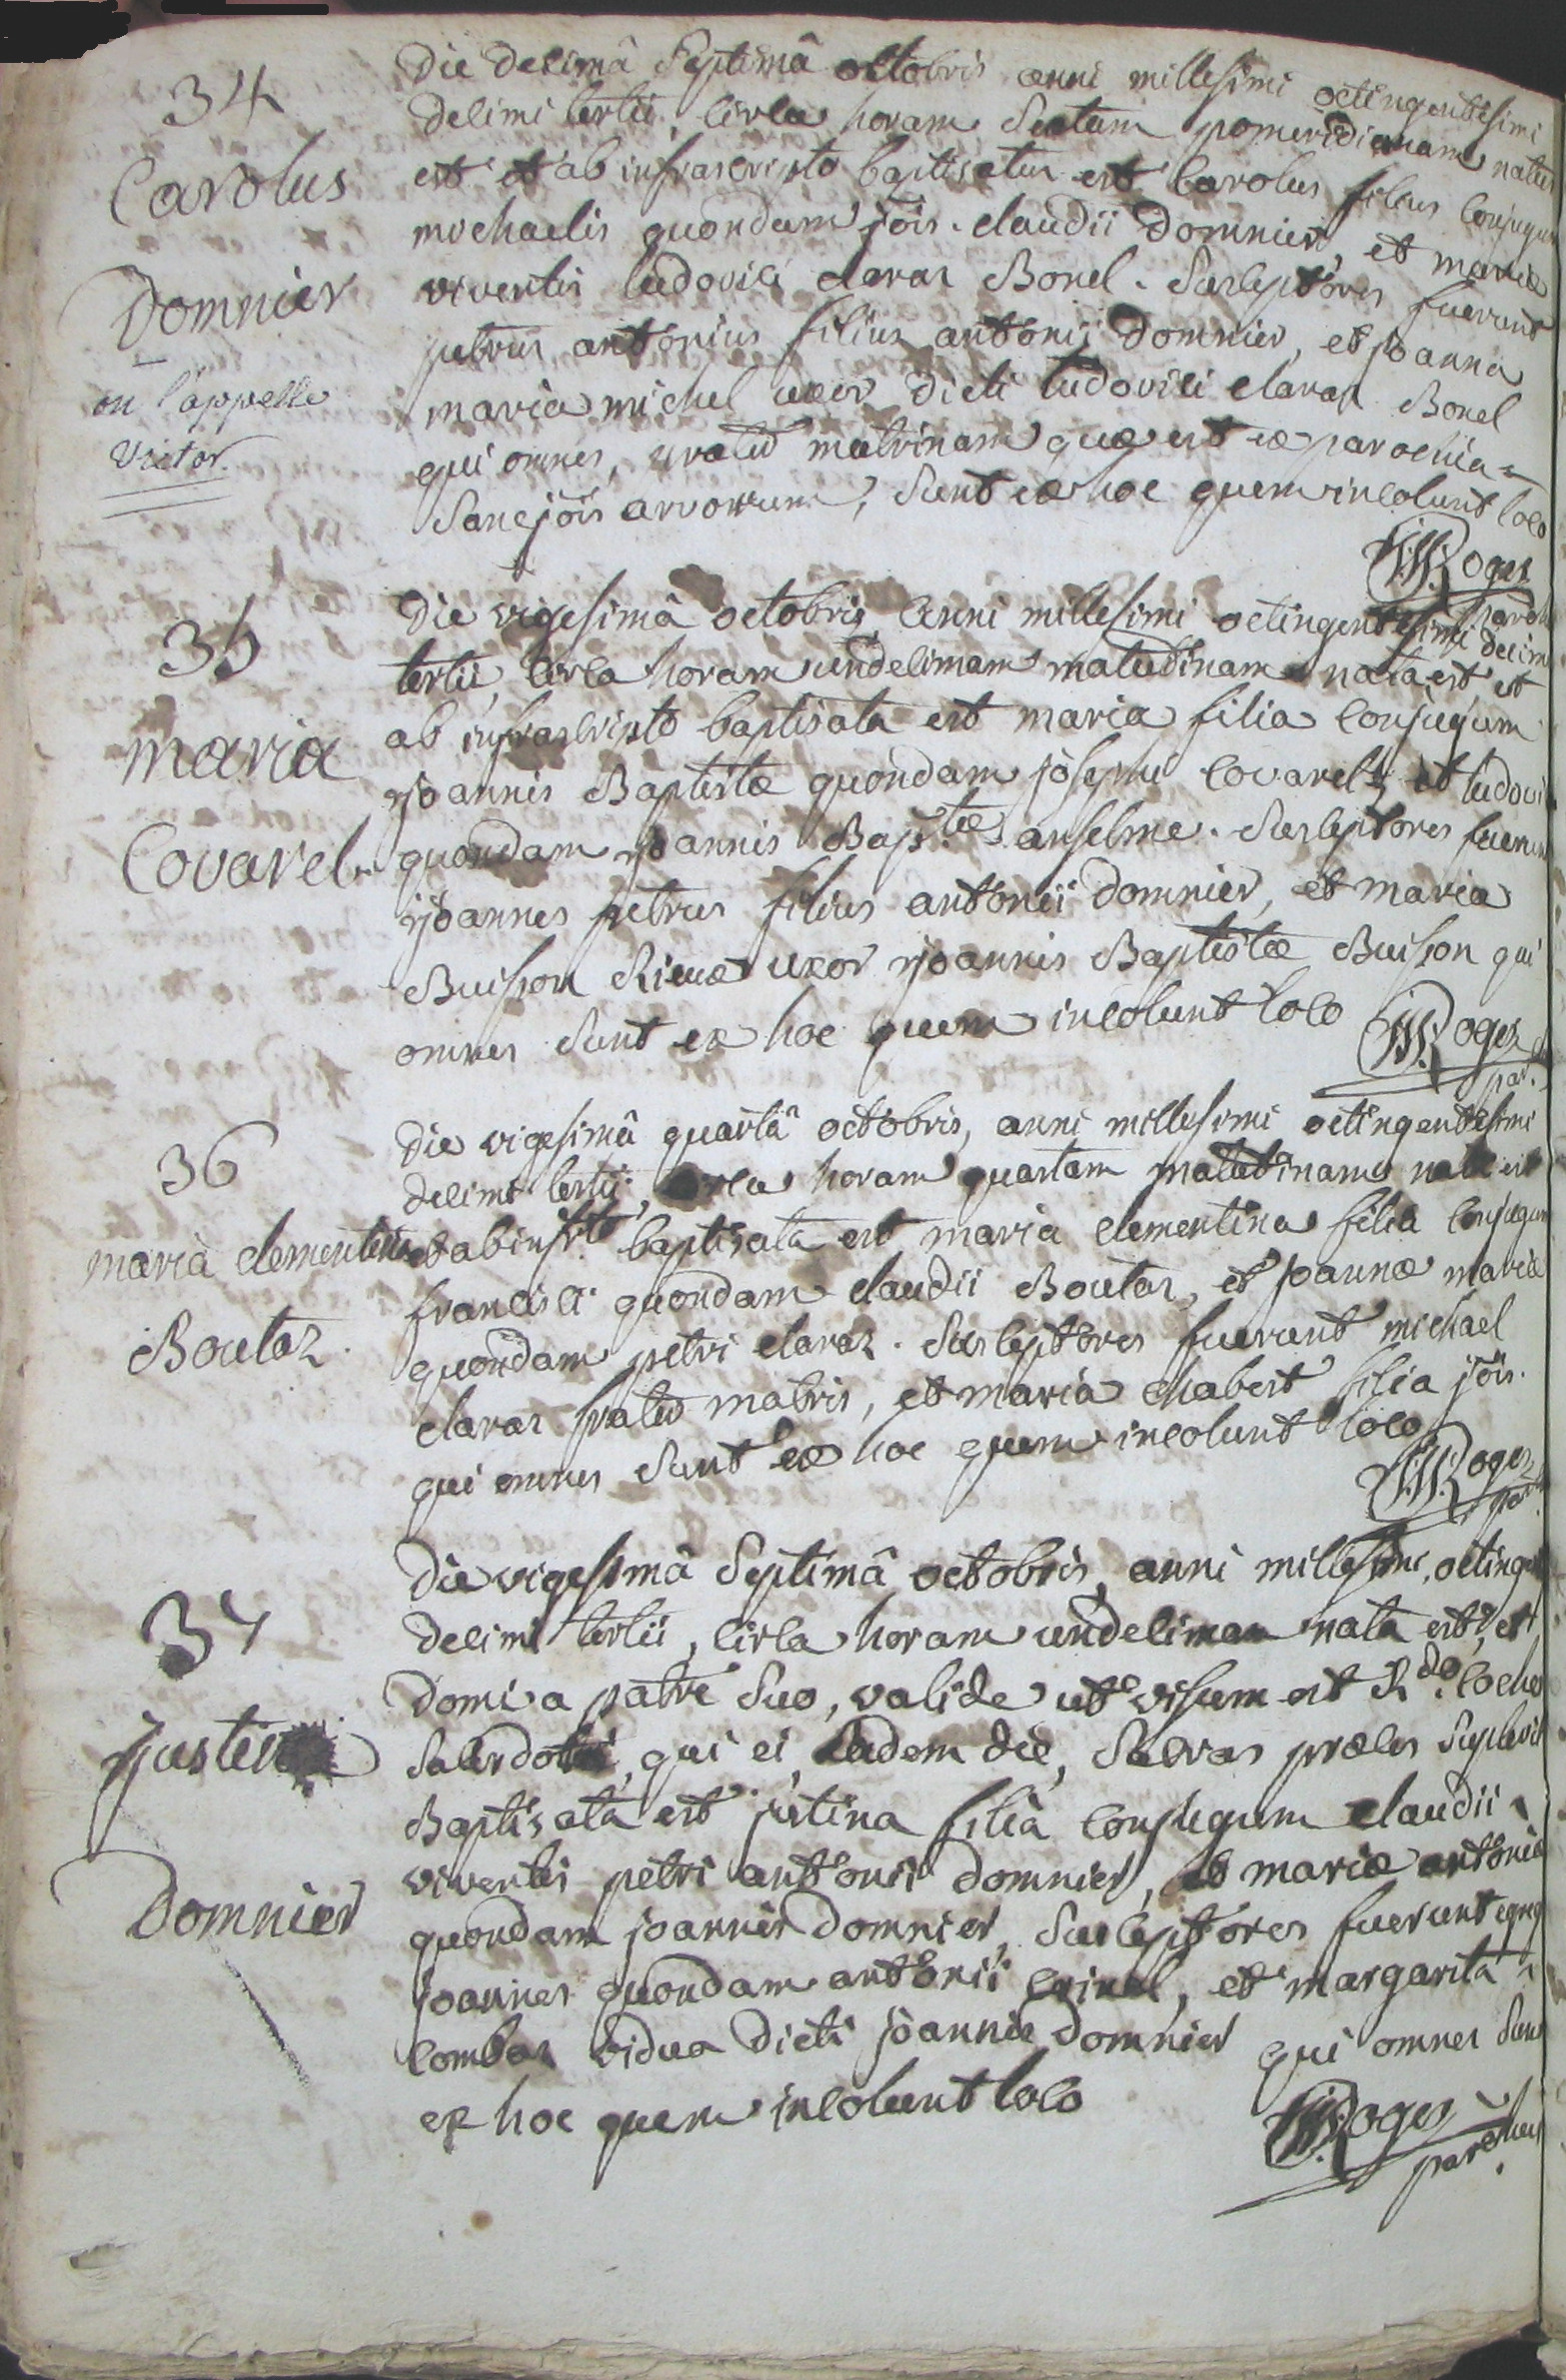 34
Carolus
Domnier
on l'appelle
Victor.
Die decimâ Septimâ octobris anni millesimi octingentesimi
decimi tertii, circa horam Sextam pomeridianam natus
est et ab infrascripto baptisatus est Carolus filius conjugum
michaelis quondam jöis. claudii Domnier, et mariæ
viventis ludovici claraz Bonel. Susceptores fuerunt
petrus antonius filius antonii Domnier, et joanna
maria michel uxor dicti ludovici claraz Bonel
qui omnes, præter matrinam quæ est ex parochia
Sancjöis arvorum, sunt ex hoc quem incolunt loco
Roges
35
maria
Covarel
Die vigesimâ octobris anni millesimi octingentesimi decimi
tertii, circa horam undecimam matutinam nata est et
ab infrascripto baptisata est maria filia conjugum
joannis Baptistæ quondam josephi Covarel, et ludovi
quondam joannis Bap.tæ anselme. Susceptores fuerun
joannes petrus filius antonii Domnier, et maria
Buisson uxor joannis Baptistæ Buisson qui
omnes sunt ex hoc quem incolunt loco
Roges
par.
36
maria clementina
Boutaz
Die vigesimâ quartâ octobris, anni millesimi octingentesimi
decimi tertii, circa horam quartam matutinam nata est
et ab infrto baptisata est maria clementina filia conjugum
francisci quondam claudii Boutaz, et joannæ mariæ
quondam petri claraz. Susceptores fuerunt michael
claraz frater matris, et maria chabert filia jöis.
qui omnes sunt ex hoc quem incolunt loco
Roges
par.
37
justina
Domnier
Die vigesimâ Septimâ octobris, anni millesimi, octinge
decimi tertii, circa horam undecimam nata est, et
Domi a patre suo, valide ut visum est R.do
Sacerdoti, qui ei, eadem die, Sacras preces Suplevit
Baptisata est justina filia conjugum claudii
viventis petri antonii Domnier, et mariæ antoniæ
quondam joannis Domnier, Susceptores fuerunt
joannes quondam antonii et margarita
combaz vidua dicti joannis Domnier qui omnes sunt
ex hoc quem incolunt loco
Roges
parochus